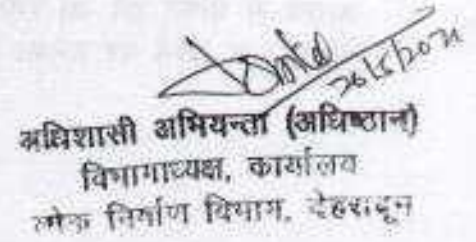 26/5/2021
अधिशासी अभियन्ता (अधिष्ठान)
विभागाध्यक्ष, कार्यालय
लोक निर्माण विभाग, देहरादून